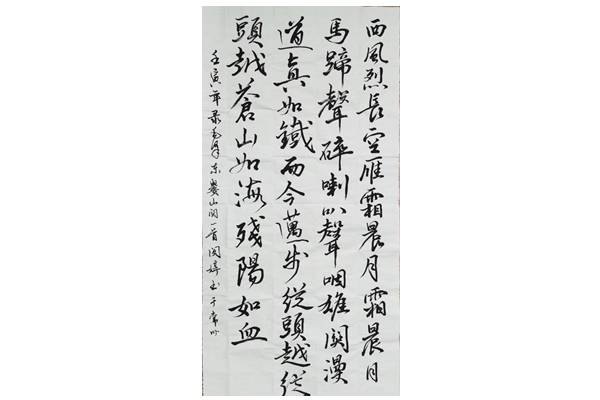 西風烈長空雁霜晨月霜晨月
馬蹄聲碎喇叭聲咽雄関漫
道真如鐵而今邁步從頭越從
頭越蒼山如海殘陽如血
壬寅年录毛泽东婁山関一首 婷书于常